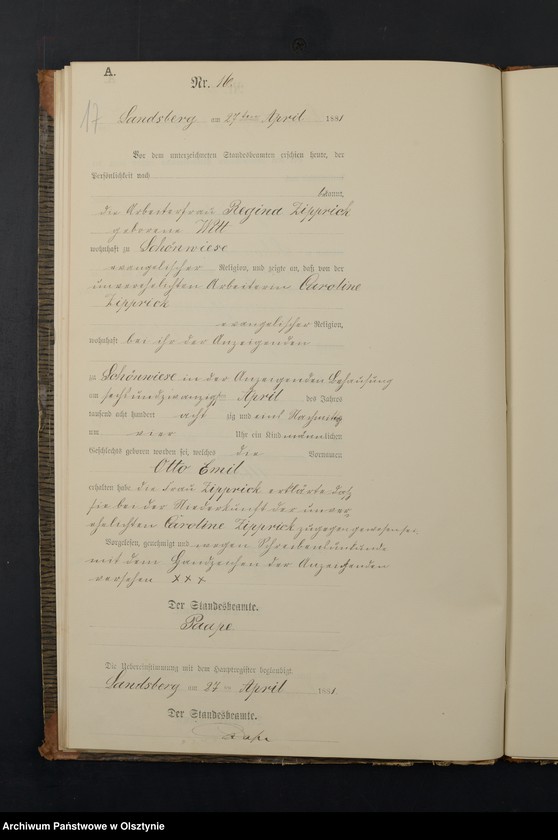 A.
Nr. 16.
17
Sandsberg am 27ten April 1881
Vor dem unterzeichneten Standesbeamten erschien heute, der
Persönlichkeit nach
bekannt,
die Arbeiterfrau Regina Zipprick
geborene Witt
wohnhaft zu Schönwiese
evangelischer Religion, und zeigte an, daß von der
unverehelichten Arbeiterin Caroline
Zipprick
evangelischer Religion,
wohnhaft bei ihr der Anzeigenden
zu Schönwiese in der Anzeigenden Behausung
am sechsundzwanzigsten April des Jahres
tausend acht hundert achtzig und eins Nachmittag
um vier Uhr ein Kind männlichen
Geschlechts geboren worden sei, welches die Vornamen
Otto Emil
erhalten habe. die Frau Zipprick erklärte daß
sie bei der Niederkunft der unver-
ehelichten Caroline Zipprick zugegen gewesen sei.
Vorgelesen, genehmigt und wegen Schreibensunkunde
mit dem Handzeichen der Anzeigenden
versehen XXX
Der Standesbeamte.
Paape
Die Uebereinstimmung mit dem Hauptregister beglaubigt
Sandsberg am 27ten April 1881.
Der Standesbeamte.
Paape
Archiwum Państwowe w Olsztynie